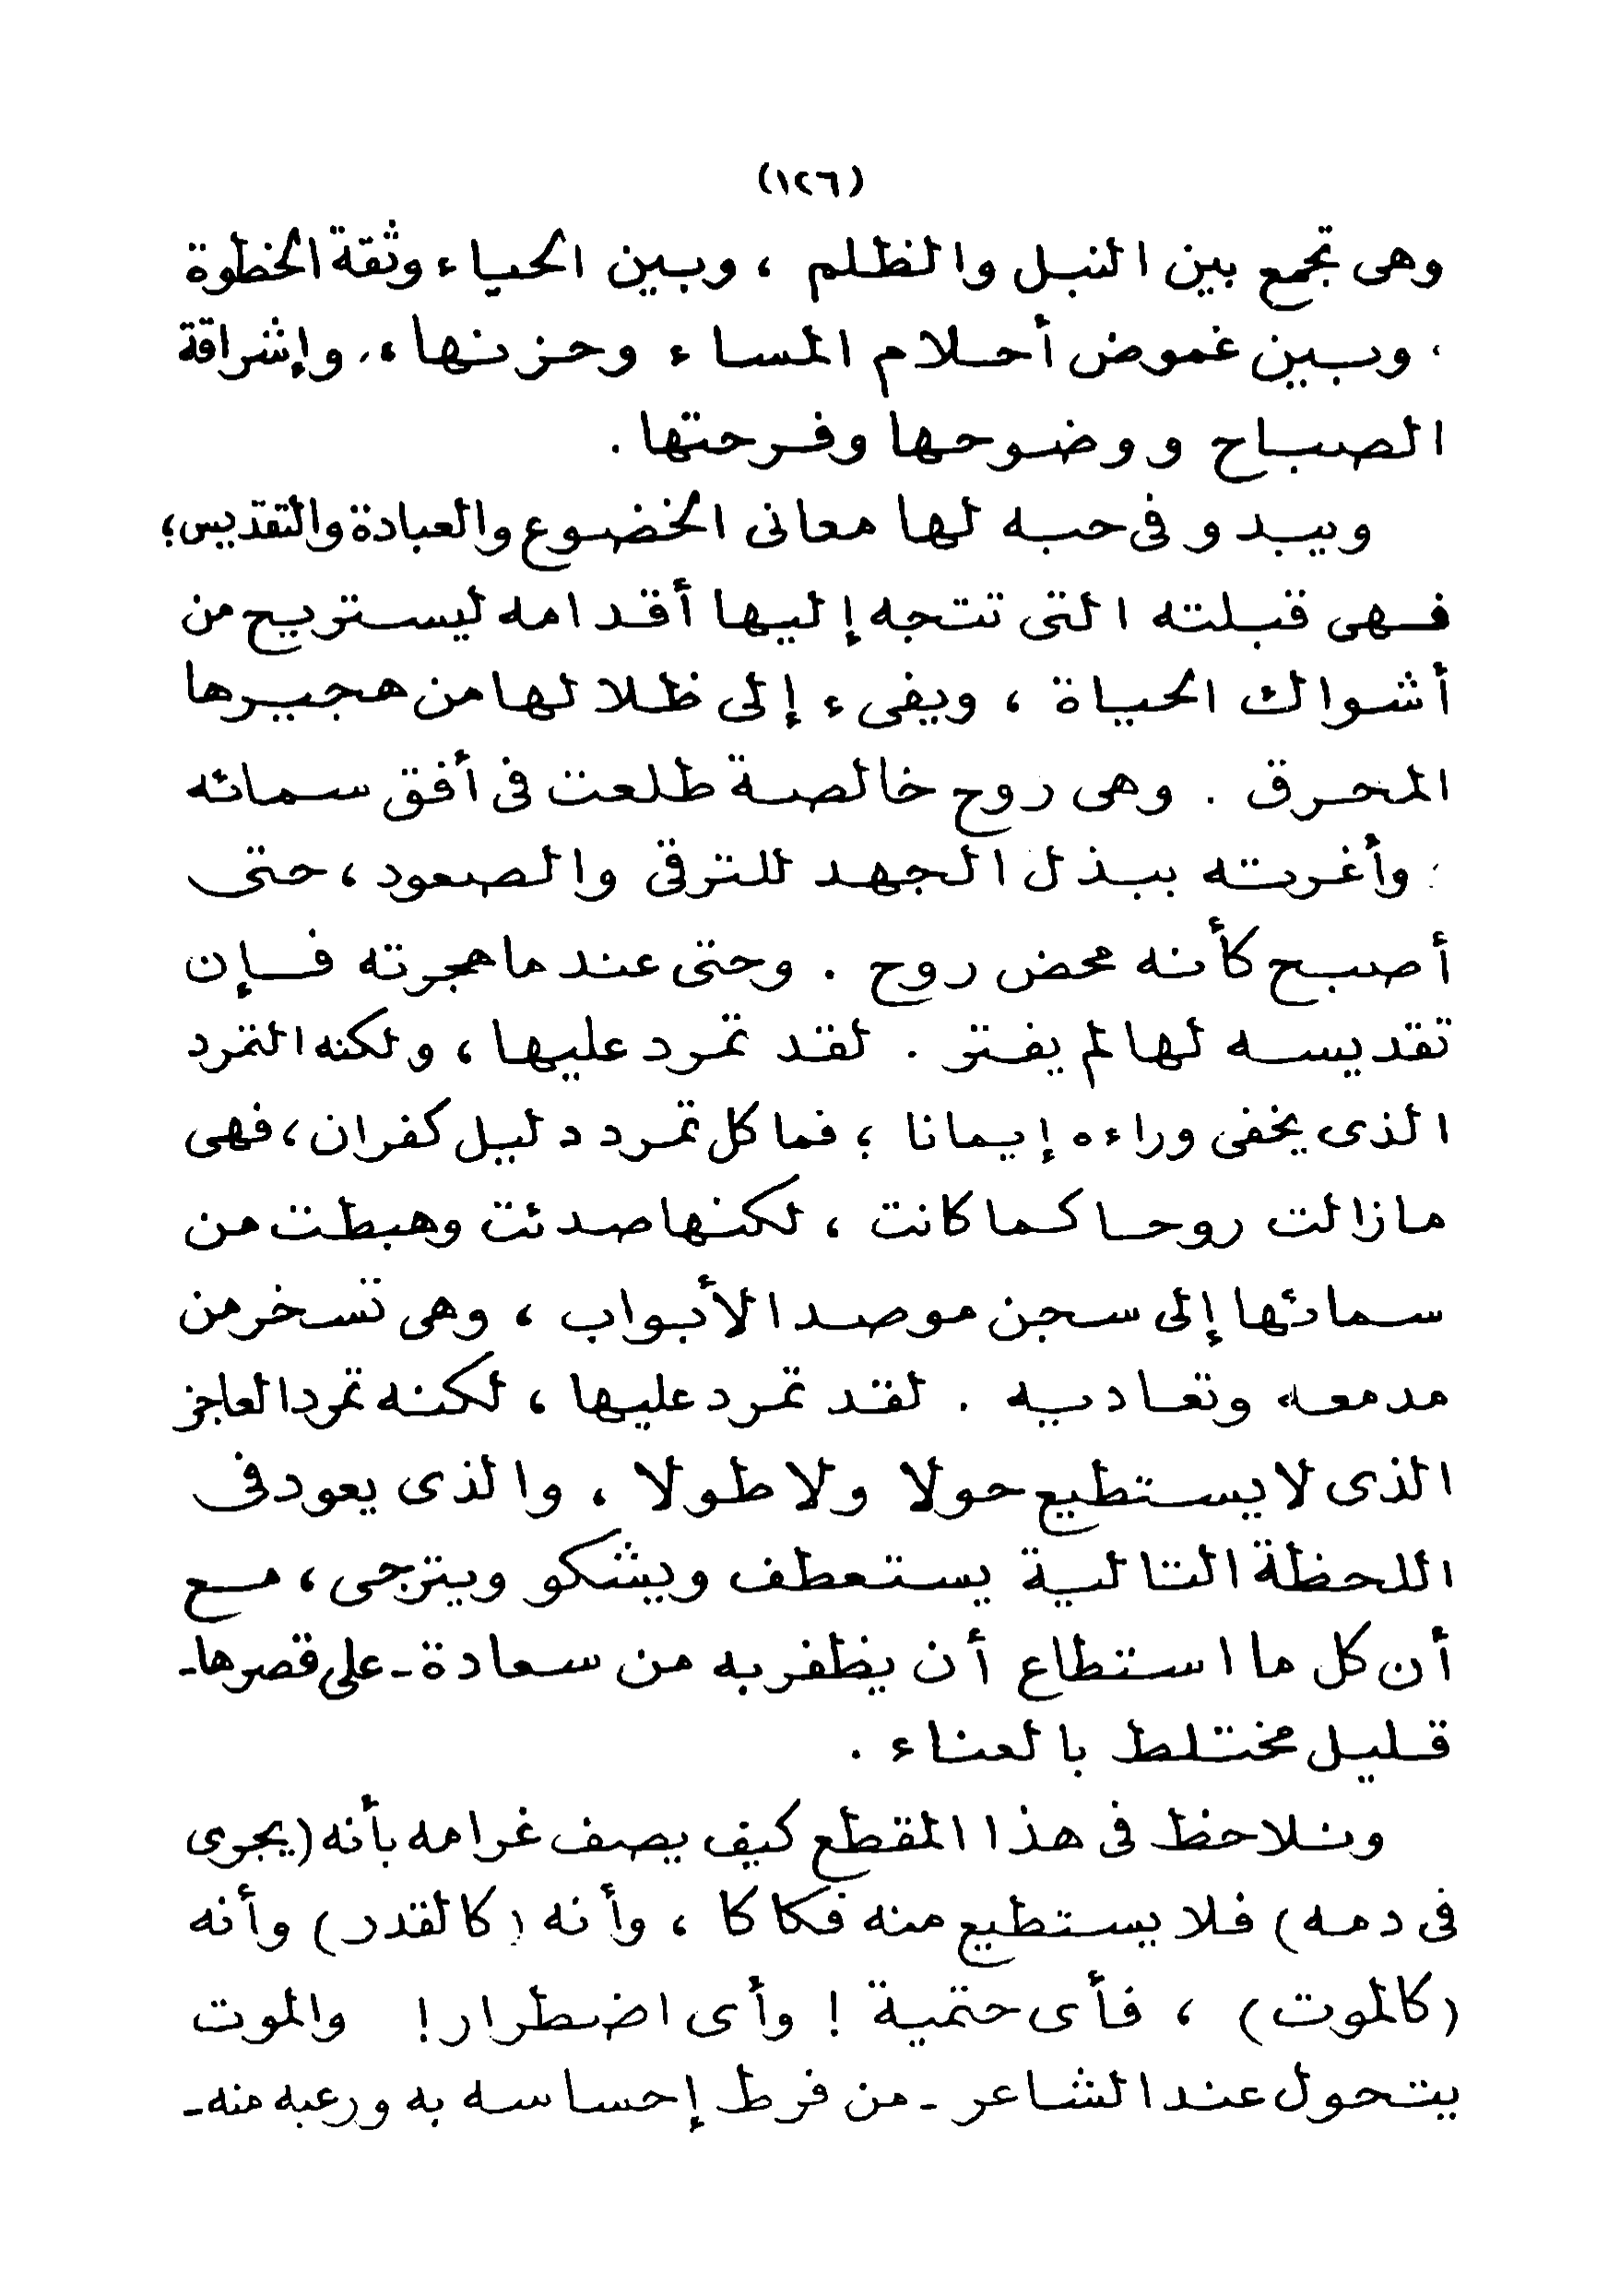 (١٢٦)
وهى تجمع بين النبل والظلم ، وبين الحياء وثقة الخطوة
، وبين غموض أحلام المساء وحزنها ، وإشراقة
الصباح ووضوحها وفرحتها .
ويبدو فى حبه لها معانى الخضوع والعبادة والتقديس؛
فهى قبلته التى تتجه إليها أقدامه ليستريح من
أشواك الحياة ، ويفىء إلى ظلالها من هجيرها
المحرق . وهى روح خالصة طلعت فى أفق سمائه
، وأغرته ببذل الجهد للترقى والصعود ، حتى
أصبح كأنه محض روح . وحتى عندما هجرته فإن
تقديسه لها لم يفتر . لقد تمرد عليها ، ولكنه التمرد
الذى يخفى وراءه إيمانا ؛ فما كل تمرد دليل كفران ، فهى
مازالت روحا كما كانت ، لكنها صدئت وهبطت من
سمائها إلى سجن موصد الأبواب ، وهى تسخر من
مدمعه وتعاديه . لقد تمرد عليها ، لكنه تمرد العاجز
الذى لا يستطيع حولا ولا طولا ، والذى يعود فى
اللحظة التالية يستعطف ويشكو ويترجى ، مع
أن كل ما استطاع أن يظفر به من سعادة - على قصرها -
قليل مختلط بالعناء .
ونلاحظ فى هذا المقطع كيف يصف غرامه بأنه (يجرى
فى دمه) فلا يستطيع منه فكاكا ، وأنه (كالقدر) وأنه
(كالموت) ، فأى حتمية ! وأى اضطرار ! والموت
يتحول عند الشاعر - من فرط إحساسه به ورعبه منه -